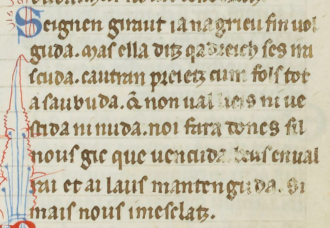 Seignen giraut ia nagrieu fin uol
guda. Mas ella ditz qadreich ses na
scuda. cautran preietz cum fols tot
a saubuda. & non ual ni ue
stida ni nuda. noi fara dones sil
nous gic que uencuda. enual
rai et ai laus mantenguda. Si
mais nous imesclatz.